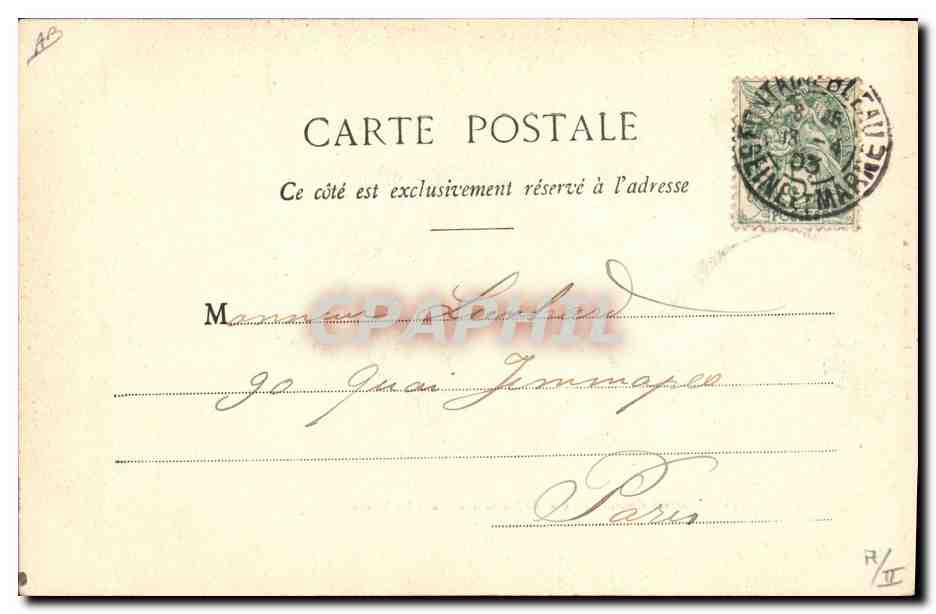 AB
CARTE POSTALE
Ce côté est exclusivement réservé à l'adresse
FONTAINEBLEAU
03
SEINE ET MARNE
POSTES
Monsieur Lienhard
90 Quai Jemmapes
Paris
CPAPHIL